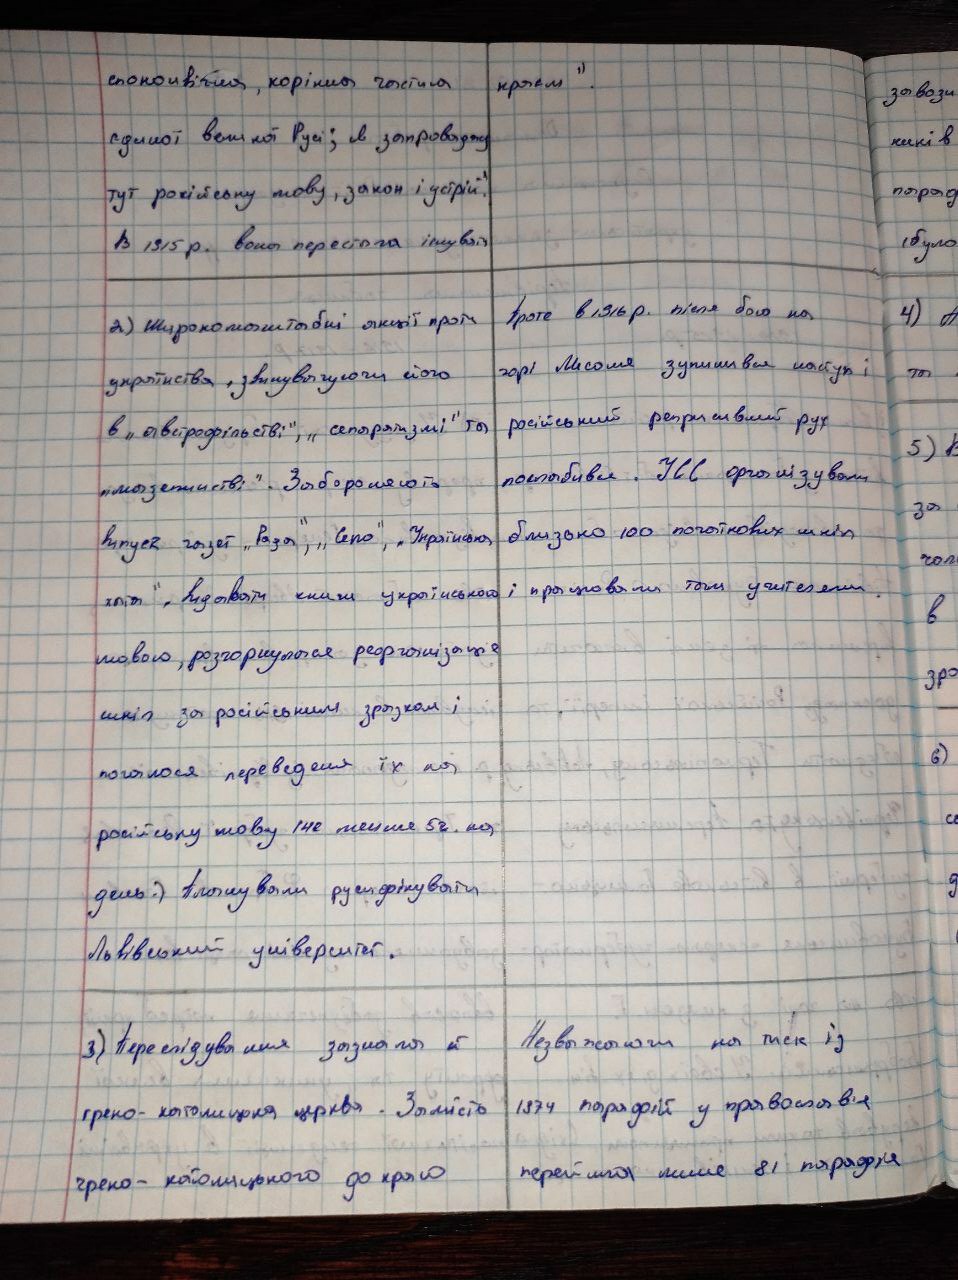 споконвічна, корінна частина
єдиної великої Русі; я запроваджу
тут російську мову, закон і устрій".
В 1915 р. вона перестала існувати
краєм".
2) Широкомасштабні акції проти
українства, звинувачуючи його
в „австрофільстві", „сепаратизмі" та
„мазепинстві". Забороняють
випуск газет „Рада", „Село", „Українська
хата", видавати книги українською
мовою, розгорнулася реорганізація
шкіл за російським зразком і
почалося переведення їх на
російську мову не менше 5г. на
день:) Планували русифікувати
Львівський університет.
Проте в 1916 р. після бою на
горі Лисоня зупинився наступ і
російський репресивний рух
послабився. УСС організували
близько 100 початкових шкіл
і працювали там учителями.
3) Переслідування зазнала й
греко-католицька церква. Замість
греко-католицького до краю
Незважаючи на тиск із
1874 парафій у православ'я
перейшла лише 81 парафія
завози
були
4)
та
5) В
за
в
зро
6)